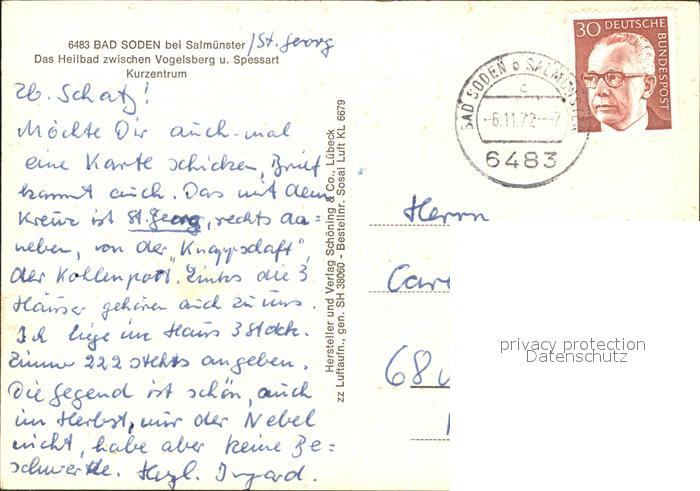 6483 BAD SODEN bei Salmünster / St. Georg
Das Heilbad zwischen Vogelsberg u. Spessart
Kurzentrum
Lb. Schatz!
Möchte Dir auch mal
eine Karte schicken, Brief
kommt auch. Das mit dem
Kreuz ist St. Georg, rechts da=
neben, von der "Knappschaft",
der Kohlenpott. Links die 3
Häuser gehören auch zu uns.
Ich liege im Haus 3 Stock.
Zimmer 222 stehts angeben.
Die Gegend ist schön, auch
im Herbst, nur der Nebel
nicht, habe aber keine Be=
schwerde. Hrzl. Irgard.
Hersteller und Verlag Schöning & Co., Lübeck
zz Luftaufn., gen. SH 38060 - Bestellnr. Sosal Luft KL 6679
BAD SODEN b SALMÜNSTER
c
-6.11.72--7
6483
30 DEUTSCHE BUNDESPOST
Herrn
Car
68
privacy protection
Datenschutz